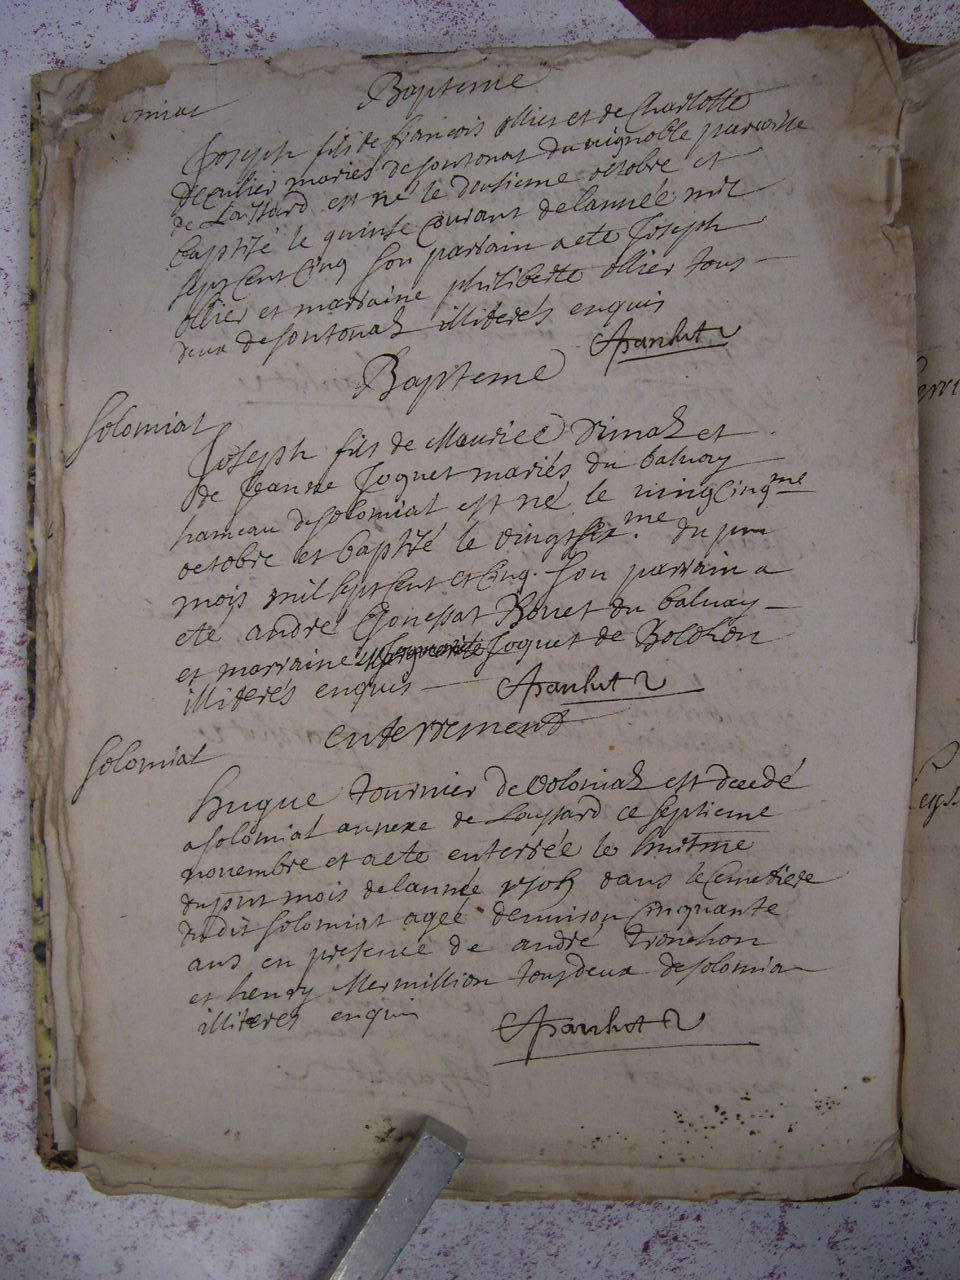 Bapteme
omiat
Joseph fils de francois ollier et de Charlotte
mariés de sontonat du vignoble parroisse
de Laissard est né le dousieme octobre et
baptisé le quinse courant de lannée mil
sept cent cinq son parrain a ete Joseph
ollier et marraine philiberte ollier tous
deux de sontonat illiterés enquis
Bapteme
Solomiat
Joseph fils de Maurice Dimat et
de Jeanne Joquet mariés du baluay
hameau de solomiat est né le vingcinqme
octobre et baptisé le vingtsix.me du pnt
mois mil sept cent et cinq. son parrain a
ete andre Bonet du baluay
et marraine Joquet de Bolohon
illiterés enquis
enterrement
Solomiat
hugue tournier de Voloniat est decedé
a solomiat annexe de Laissard ce septieme
novembre et a ete enterrée le huitme
du pnt mois de lannée 1705 dans le Cemetiere
dudit solomiat ageé denuiron cinquante
ans en presence de andré tronchon
et henry Mermillion tous deux de solomia
illiteres enquis